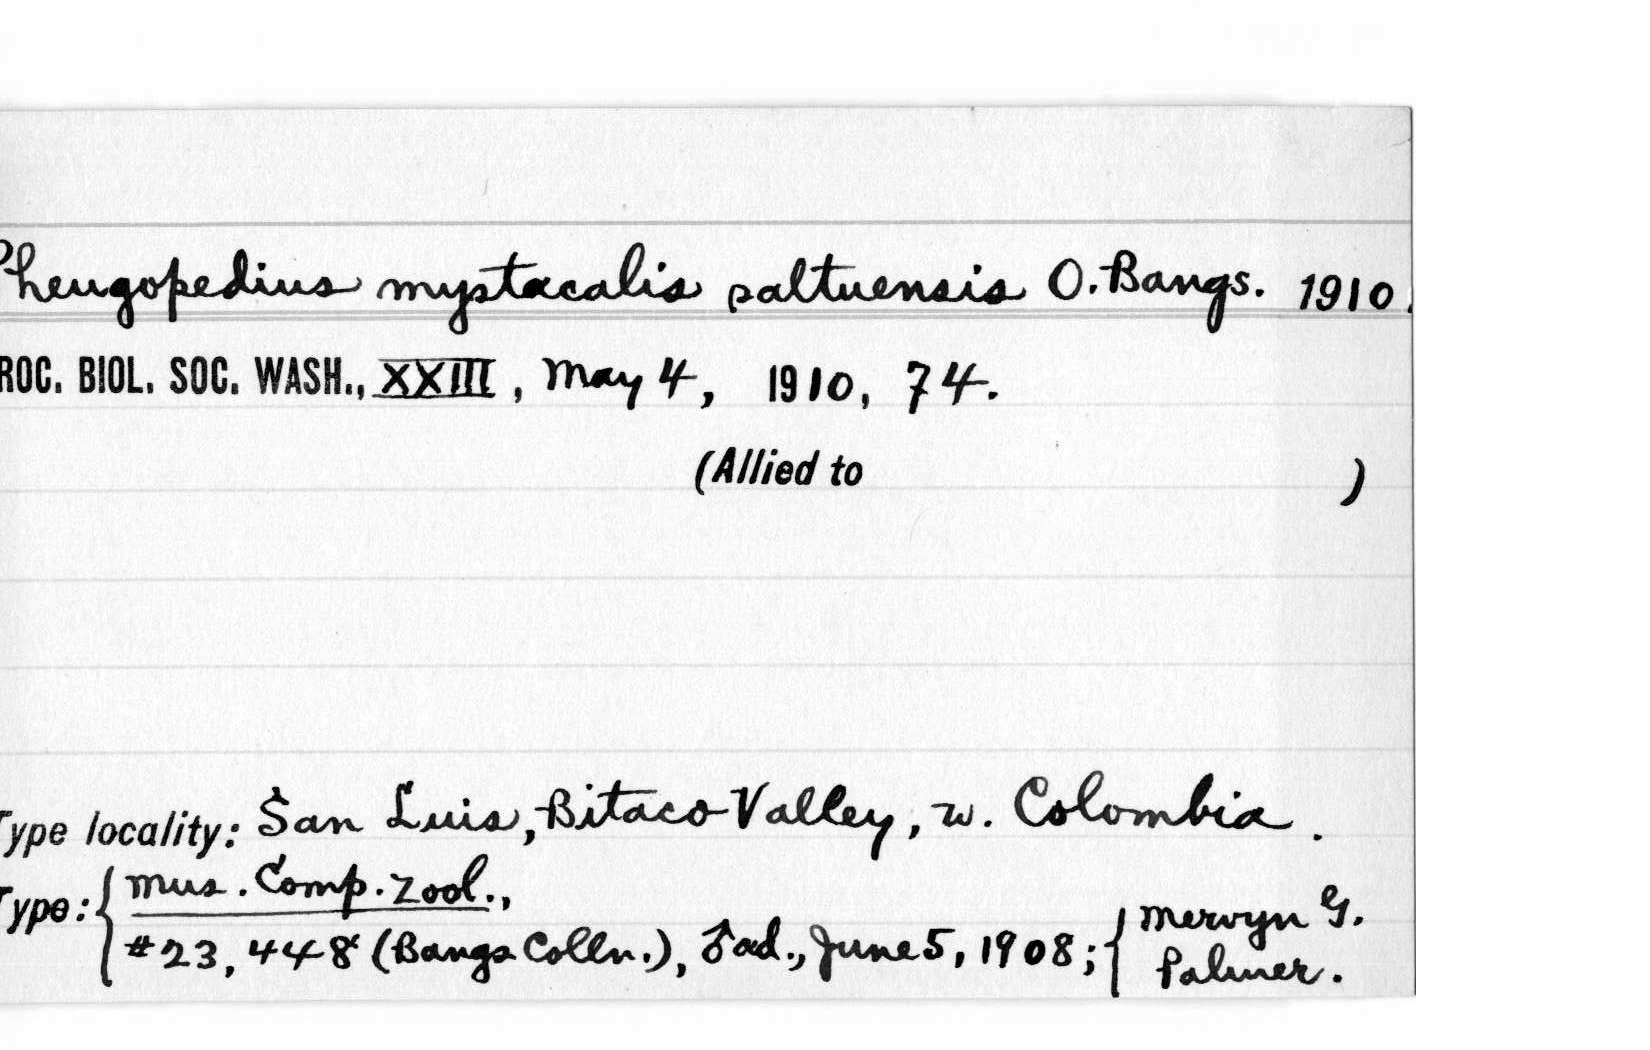 Pheugopedius mystacalis saltuensis O. Bangs. 1910.
ROC. BIOL. SOC. WASH., XXIII, May 4, 1910, 74.
(Allied to )
Type locality: San Luis, Bitaco Valley, w. Colombia.
Type: { Mus. Comp. Zool.,
#23,448 (Bangs Colln.), ♂ ad., June 5, 1908; { Mervyn G.
Palmer.